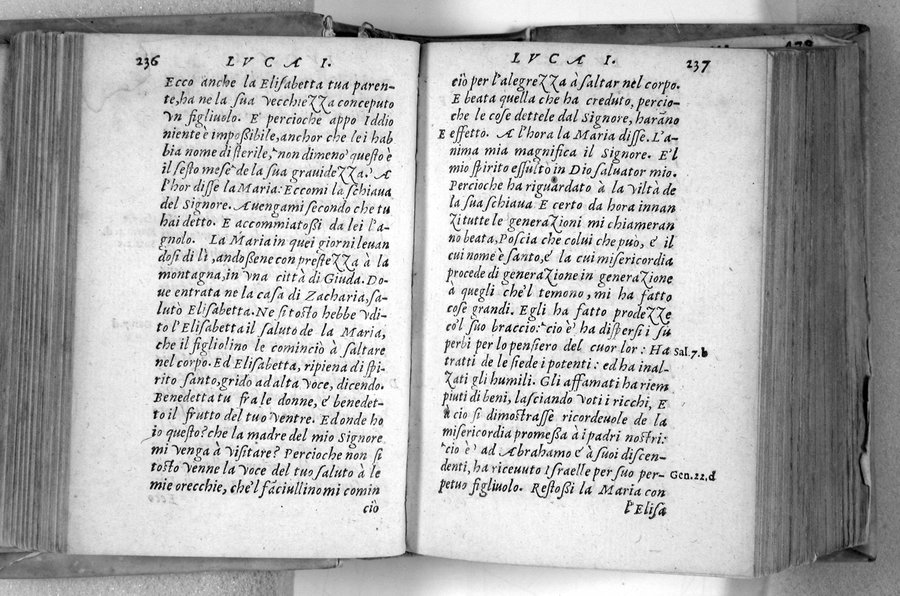 236 LVCA I.
Ecco anche la Elisabetta tua paren-
te, ha ne la sua vecchiezza conceputo
vn figliuolo. E percioche appo Iddio
niente è impossibile, anchor che lei hab
bia nome di sterile, non dimeno questo è
il sesto mese de la sua grauidezza. A
l'hor disse la Maria: Eccomi la schiaua
del Signore. Auengami secondo che tu
hai detto. E accommiatossi da lei l'a-
gnolo. La Maria in quei giorni leuan
dosi di lì, andossene con prestezza à la
montagna, in vna città di Giuda. Do-
ue entrata ne la casa di Zacharia, sa-
lutò Elisabetta. Ne si tosto hebbe vdi-
to l'Elisabetta il saluto de la Maria,
che il figliolino le cominciò à saltare
nel corpo. Ed Elisabetta, ripiena di spi-
rito santo, grido ad alta voce, dicendo.
Benedetta tu fra le donne, é benedet-
to il frutto del tuo ventre. E donde ho
io questo? che la madre del mio Signore
mi venga à visitare? Percioche non si
tosto venne la voce del tuo saluto à le
mie orecchie, che'l fanciullino mi comin
ciò
LVCA I. 237
ciò per l'alegrezza à saltar nel corpo.
E beata quella che ha creduto, percio-
che le cose dettele dal Signore, harãno
E effetto. A l'hora la Maria disse. L'a-
nima mia magnifica il Signore. E'l
mio spirito essultò in Dio saluator mio.
Percioche ha riguardato à la viltà de
la sua schiaua E certo da hora innan
zi tutte le generazioni mi chiameran
no beata, Poscia che colui che puo, é il
cui nome è santo, é la cui misericordia
procede di generazione in generazione
à quegli che'l temono, mi ha fatto
cose grandi. Egli ha fatto prodezze
co'l suo braccio: cio è ha dispersi i su
perbi per lo pensiero del cuor lor: Ha Sal.7.b
tratti de le siede i potenti: ed ha inal-
zati gli humili. Gli affamati ha riem
piuti di beni, lasciando voti i ricchi, E
a cio si dimostrasse ricordeuole de la
misericordia promessa à i padri nostri:
cio è ad Abrahamo é à suoi discen-
denti, ha riceuuto Israelle per suo per- Gen.22.d
petuo figliuolo. Restossi la Maria con
l'Elisa